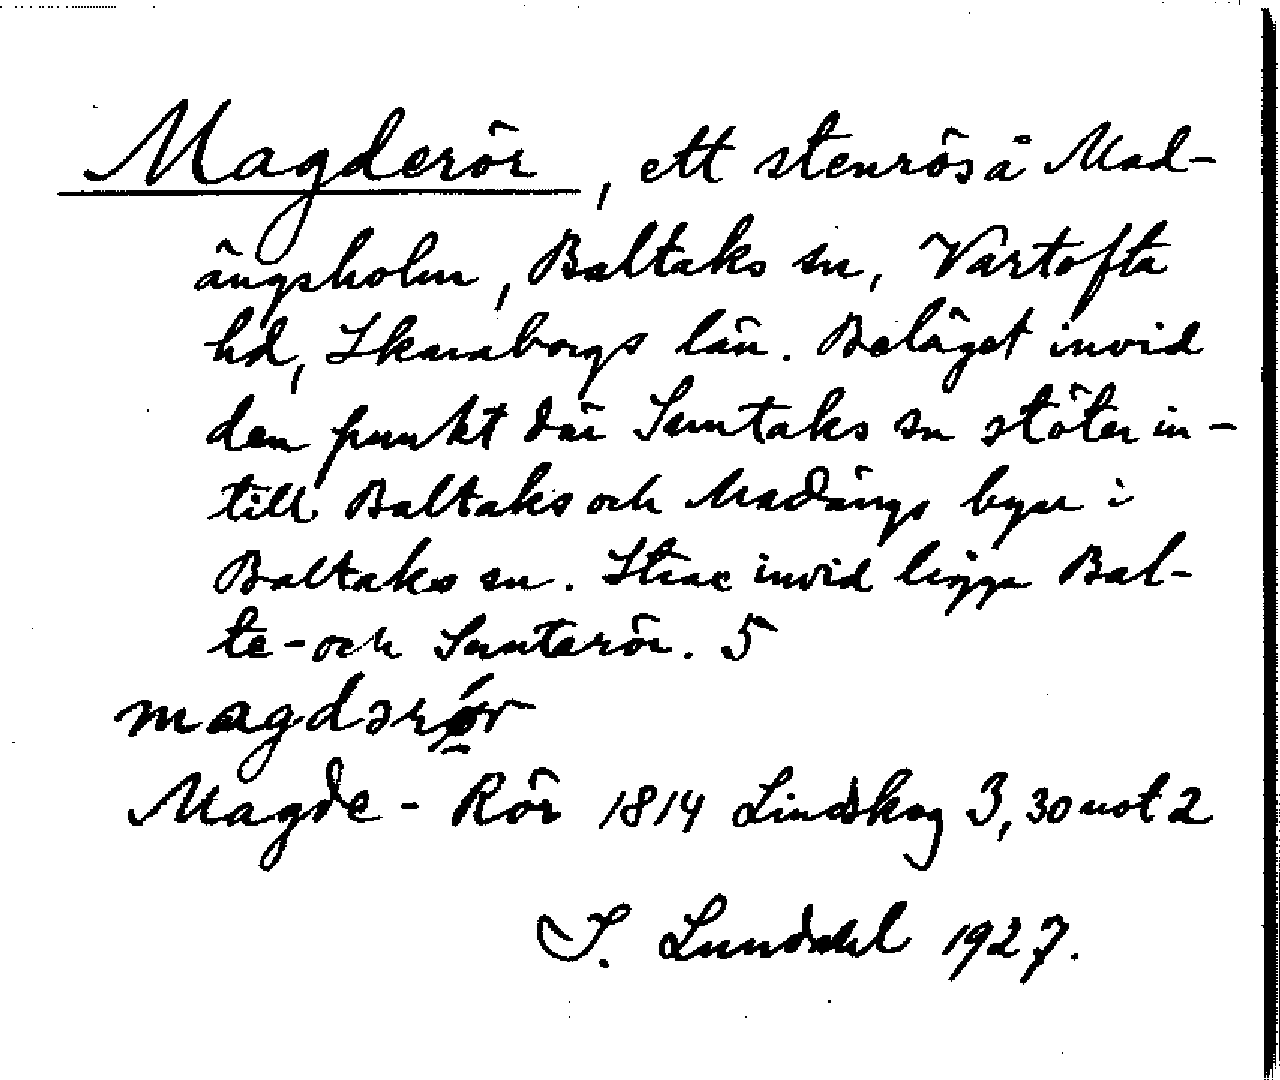 Magderör, ett stenrös å Mad-
ängsholm, Baltaks sn, Vartofta
hd, Skaraborgs län. Beläget invid
den punkt där Suntaks sn stöter in-
till Baltaks och Madängs byar i
Baltaks sn. Strax invid ligga Bal-
te- och Sunterör. 5
magdərør
Magde-Rör 1814 Lindskog 3, 30 not 2
I. Lundahl 1927.